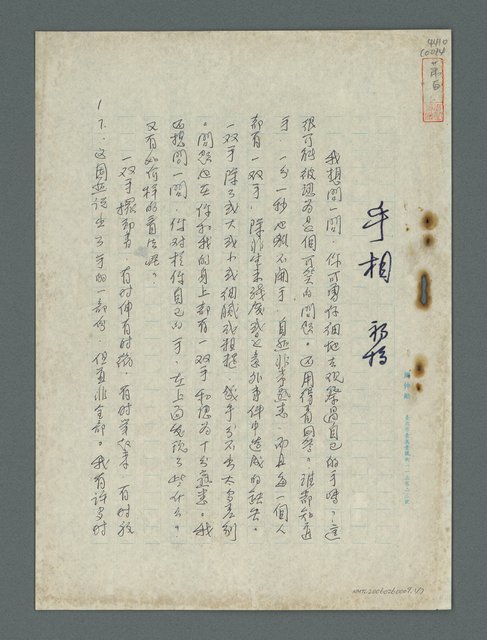 4410
手相
我想問一問,你可曾仔細地去觀察過自己的手嗎?這
很可能被認為是個可笑的問題。還用得着回答。誰都知道
手,一分一秒也離不開手,自然非常熟悉,而且每一個人
都有一双手,除非生來殘廢或是意外事件中造成的缺失。
一双手除了或大或小或細膩或粗糙,幾乎分不出大多差別
。問題也在你和我的身上都有一双手和認為十分熟悉。我
也想問一問,你對於你自己的手,在上面發現了些什么。
又有如何樣的看法呢?
一双手攤却着,有時伸有時縮,有時举起來,有時放
下,這固然說出了手的一部份,但並非全部。我有許多時
1
NMTL20060260009,1/3